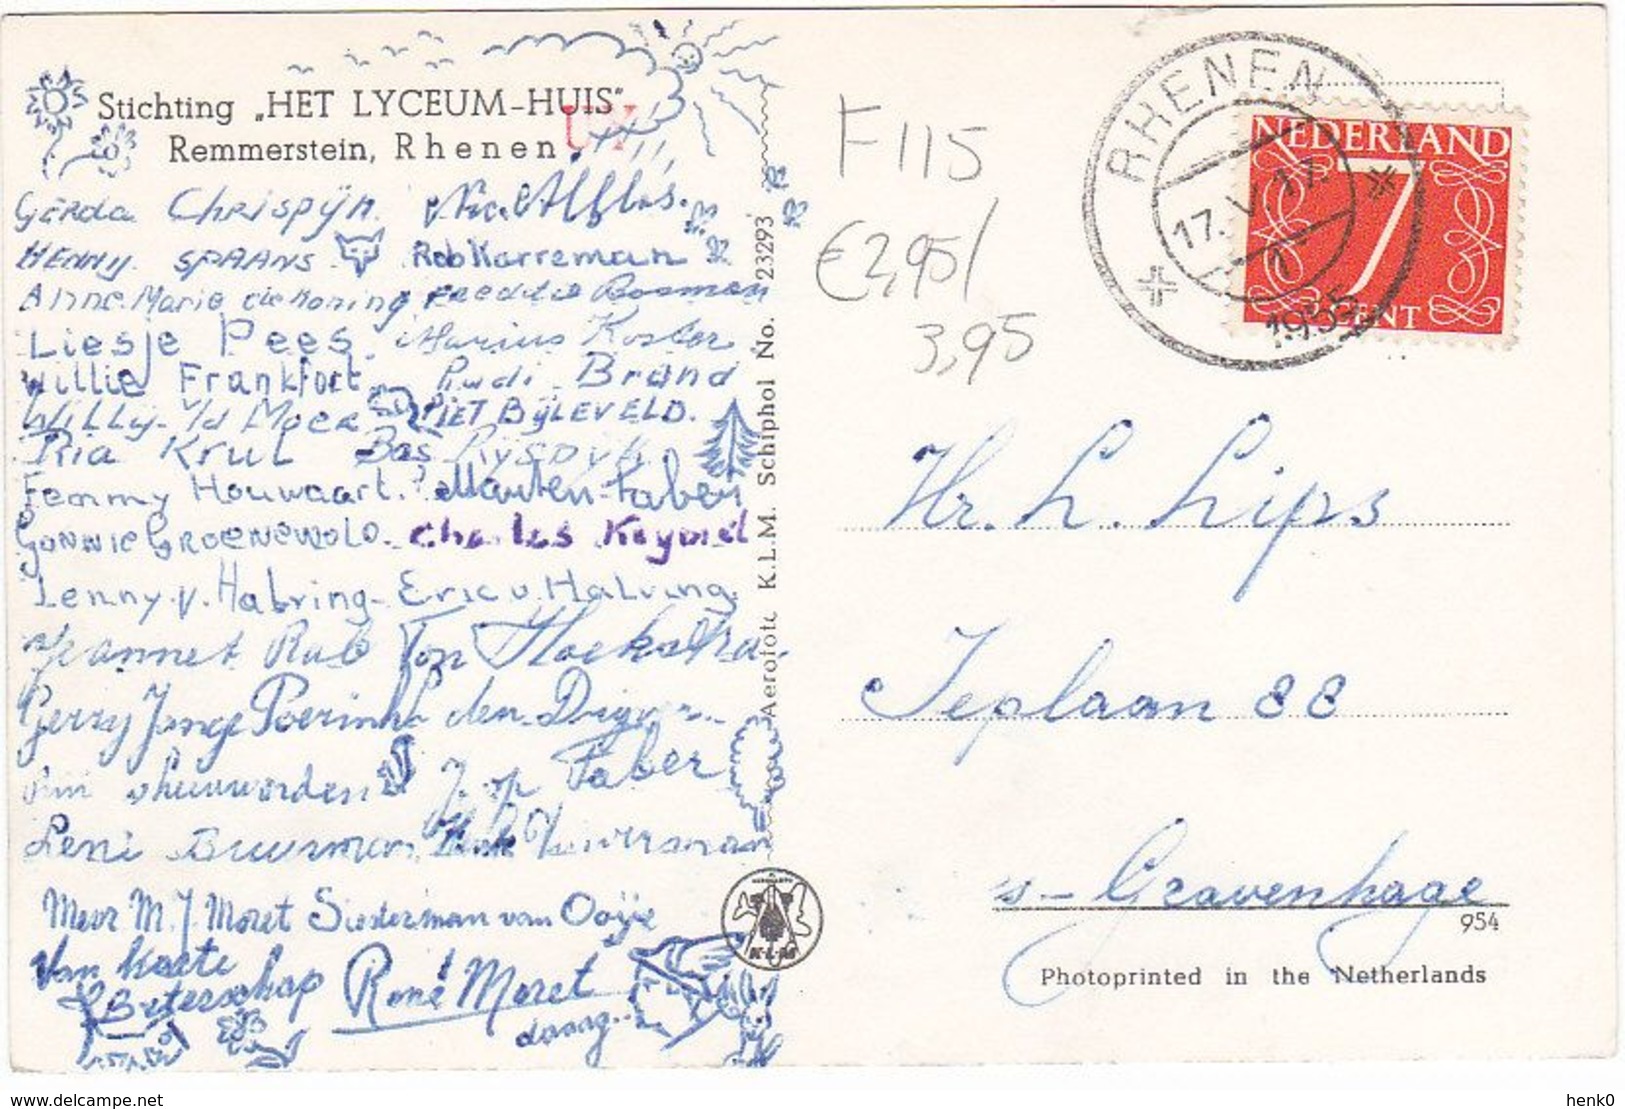 Stichting „HET LYCEUM-HUIS"
Remmerstein, Rhenen
UX
GERda Chrispijn.
HENNY. SPAANS. Rob Karreman
Anne-Marie de Koning Freddie Bosman
Liesje Pees. Marius Koster
Willie Frankfort. Rudi Brand
WILLY v/d Moer PIET BIJLEVELD.
Ria Krul Bas Rijsdijk.
Femmy Houwaart. Maarten Faber
GONNIE GROENEWOLD. Charles Keyord
Lenny v. Halvring - Eric v. Halvring.
Jeannet Rab Ton Hoekstra.
Gerry Jonge Poerink den
Leeuwerden Jaap Faber
Leni Buurman Henk
Mevr M. J. Moret Siederman van Ooije
Van korte
Beterschap René Moret
daaag..
Aerofoto K.L.M. Schiphol No. 23293
K.L.M
F115
€2,95/
3,95
RHENEN
17.V.17.
1
1955
NEDERLAND
7
CENT
Hr. L. Lips
Ieplaan 88
s-Gravenhage
954
Photoprinted in the Netherlands
www.delcampe.net
henk0